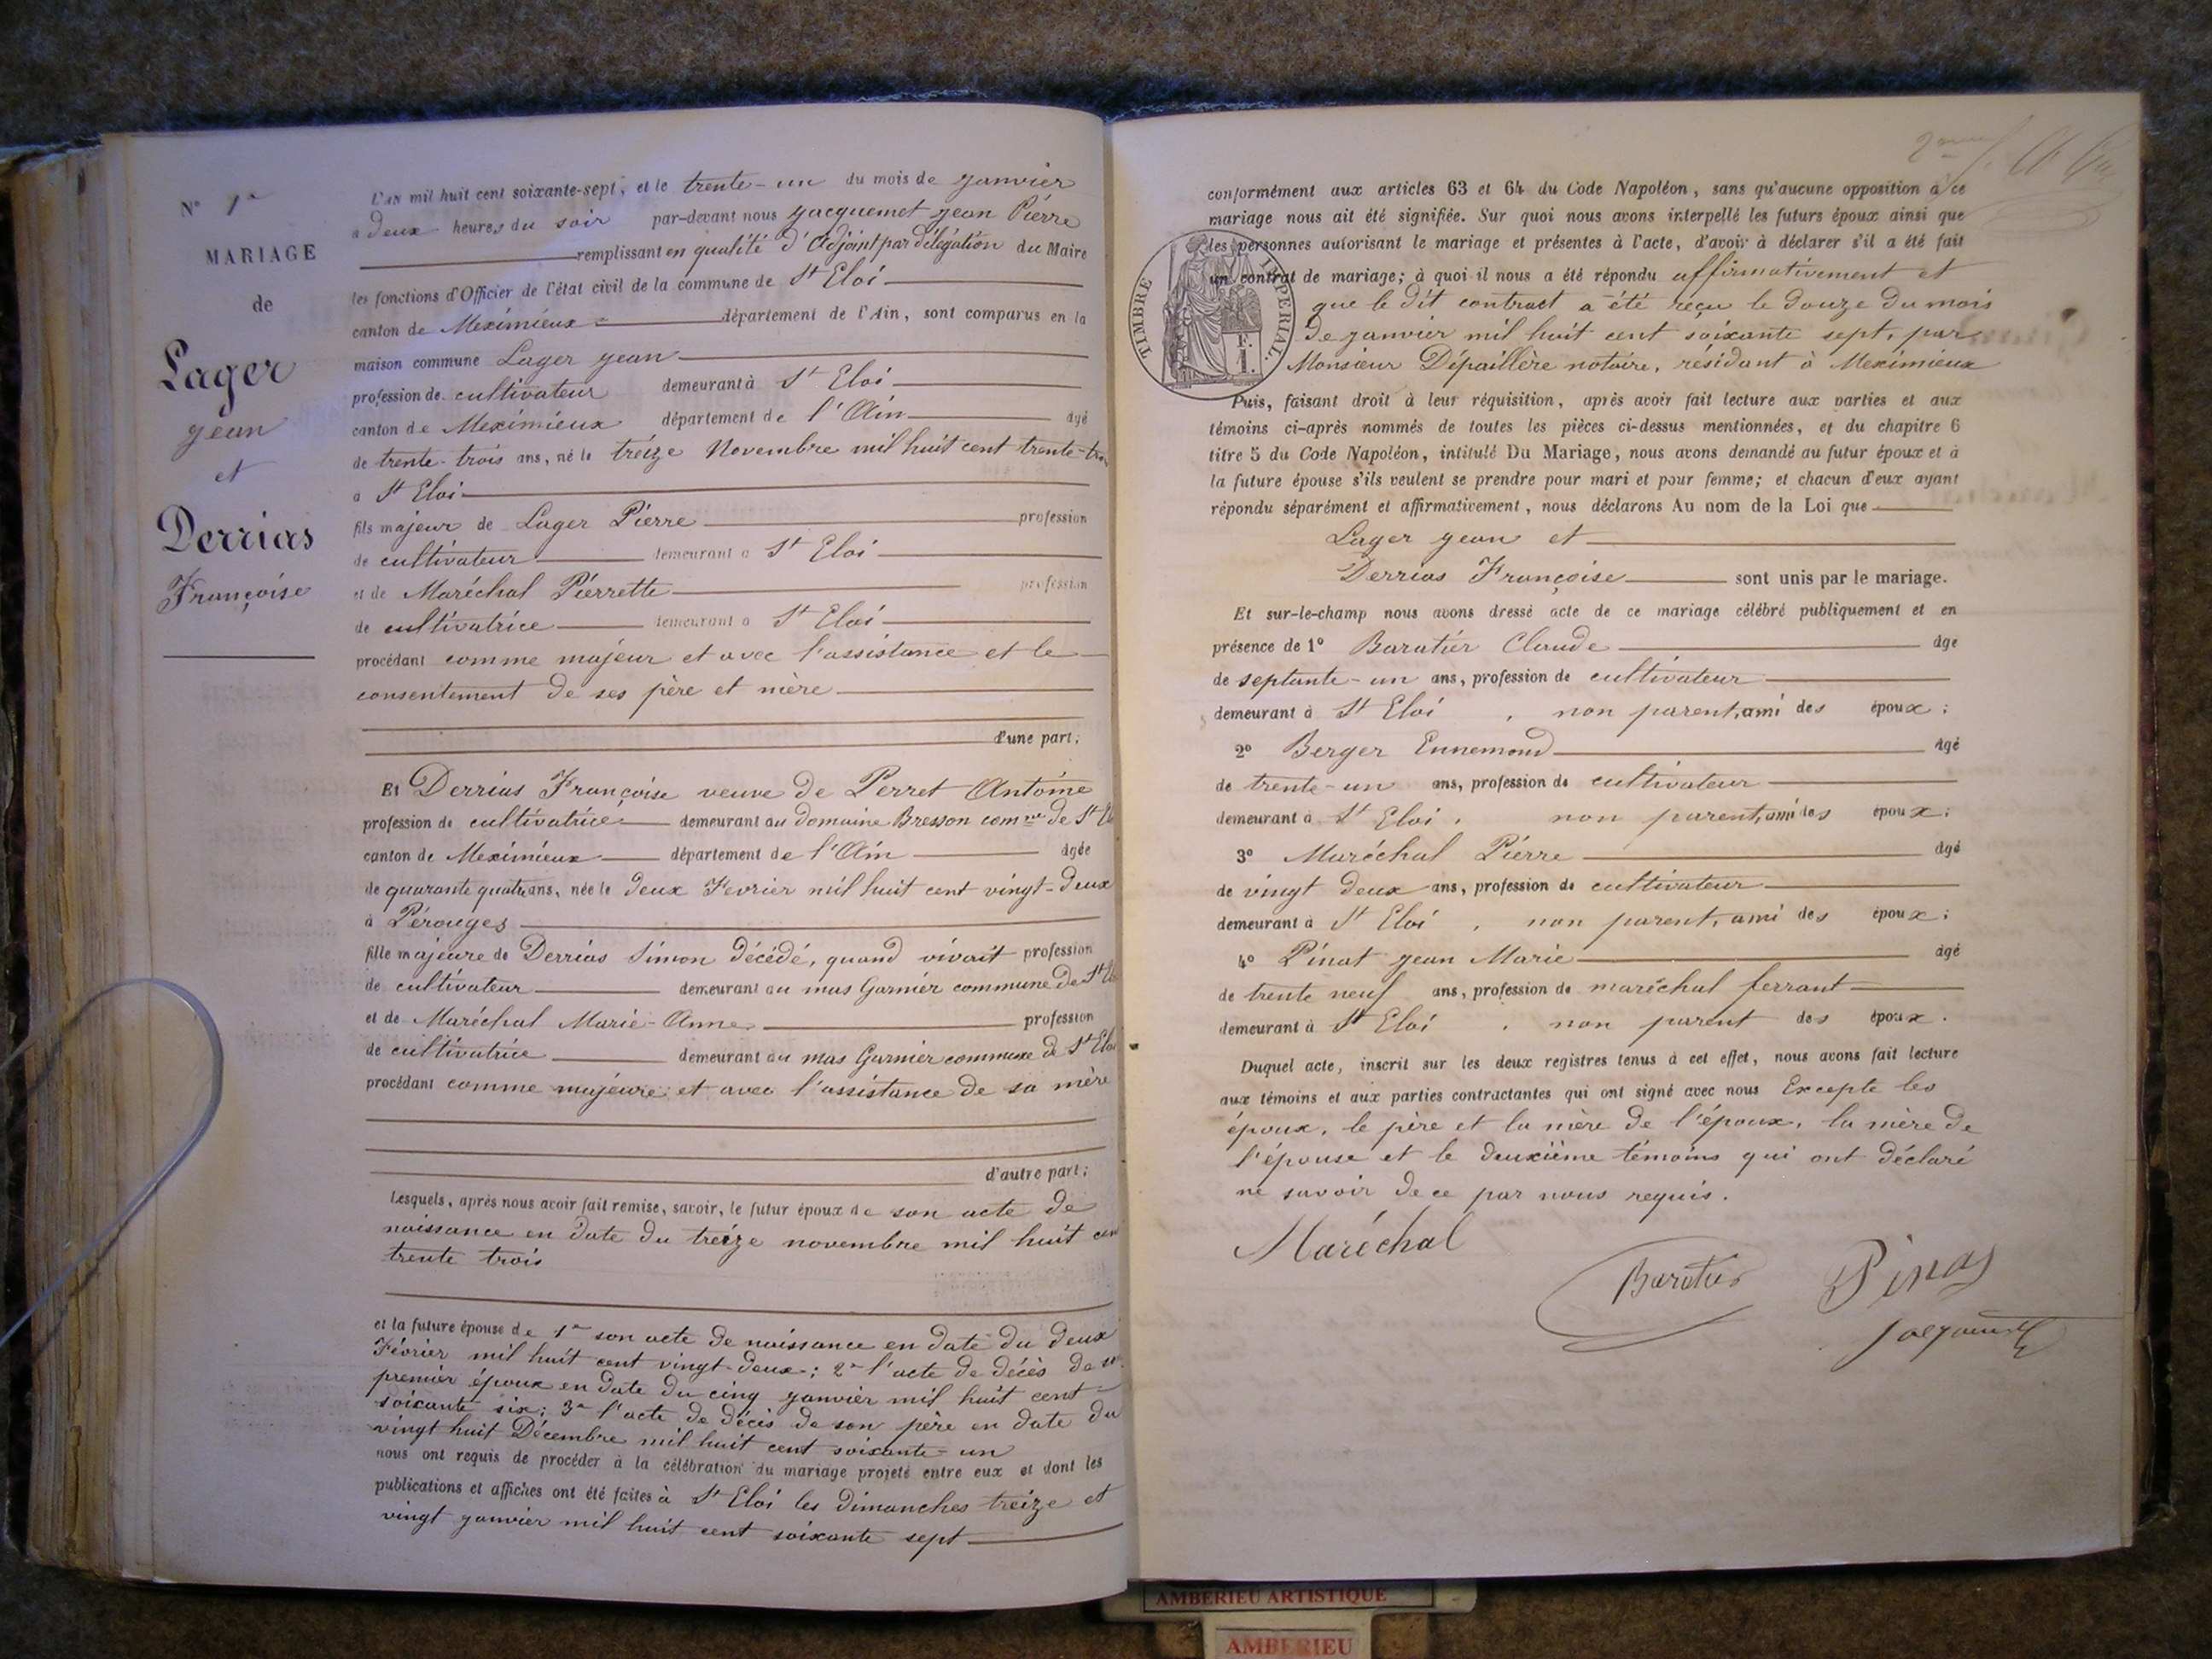 N° 1er
MARIAGE
de
Lager
jean
et
Derrias
Françoise
L'AN mil huit cent soixante-sept, et le trente-un du mois de janvier
à deux heures du soir par-devant nous jacquemet jean Pierre
remplissant en qualité d'Adjoint par délégation du Maire
les fonctions d'Officier de l'état civil de la commune de St Eloi
canton de Meximieux département de l'Ain, sont comparus en la
maison commune Lager jean
profession de cultivateur demeurant à St Eloi
canton de Meximieux département de l'Ain âgé
de trente-trois ans, né le treize Novembre mil huit cent trente-trois
à St Eloi
fils majeur de Lager Pierre profession
de cultivateur demeurant à St Eloi
et de Maréchal Pierrette profession
de cultivatrice demeurant à St Eloi
procédant comme majeur et avec l'assistance et le
consentement de ses père et mère
d'une part;
Et Derrias Françoise veuve de Perret Antoine
profession de cultivatrice demeurant au domaine Bresson comne de St
canton de Meximieux département de l'Ain âgée
de quarante quatre ans, née le deux Fevrier mil huit cent vingt-deux
à Pérouges
fille majeure de Derrias Simon décédé, quand vivait profession
de cultivateur demeurant au mas Garnier commune de St
et de Maréchal Marie-Anne profession
de cultivatrice demeurant au mas Garnier commune de St Eloi
procédant comme majeure et avec l'assistance de sa mère
d'autre part;
Lesquels, après nous avoir fait remise, savoir, le futur époux de son acte de
naissance en date du treize novembre mil huit cent
trente trois
et la future épouse de 1er son acte de naissance en date du deux
Février mil huit cent vingt-deux; 2e l'acte de décès de son
premier époux en date du cinq janvier mil huit cent
soixante six; 3e l'acte de décès de son père en date du
vingt huit Décembre mil huit cent soixante-un
nous ont requis de procéder à la célébration du mariage projeté entre eux et dont les
publications et affiches ont été faites à St Eloi les dimanches treize et
vingt janvier mil huit cent soixante sept
conformément aux articles 63 et 64 du Code Napoléon, sans qu'aucune opposition à ce
mariage nous ait été signifiée. Sur quoi nous avons interpellé les futurs époux ainsi que
les personnes autorisant le mariage et présentes à l'acte, d'avoir à déclarer s'il a été fait
un contrat de mariage; à quoi il nous a été répondu affirmativement et
que le dit contract a été reçu le douze du mois
de janvier mil huit cent soixante sept, par
Monsieur Dépaillère notaire, résidant à Meximieux
TIMBRE IMPERIAL.
1 F.
Puis, faisant droit à leur réquisition, après avoir fait lecture aux parties et aux
témoins ci-après nommés de toutes les pièces ci-dessus mentionnées, et du chapitre 6
titre 5 du Code Napoléon, intitulé Du Mariage, nous avons demandé au futur époux et à
la future épouse s'ils veulent se prendre pour mari et pour femme; et chacun d'eux ayant
répondu séparément et affirmativement, nous déclarons Au nom de la Loi que
Lager jean et
Derrias Françoise sont unis par le mariage.
Et sur-le-champ nous avons dressé acte de ce mariage célébré publiquement et en
présence de 1° Baratier Claude âgé
de septante-un ans, profession de cultivateur
demeurant à St Eloi, non parent, ami des époux;
2° Berger Ennemond âgé
de trente-un ans, profession de cultivateur
demeurant à St Eloi, non parent, ami des époux;
3° Maréchal Pierre âgé
de vingt deux ans, profession de cultivateur
demeurant à St Eloi, non parent, ami des époux;
4° Pinat jean Marie âgé
de trente neuf ans, profession de maréchal ferrant
demeurant à St Eloi, non parent des époux.
Duquel acte, inscrit sur les deux registres tenus à cet effet, nous avons fait lecture
aux témoins et aux parties contractantes qui ont signé avec nous Excepte les
époux, le père et la mère de l'époux, la mère de
l'épouse et le deuxième témoins qui ont déclaré
ne savoir de ce par nous requis.
Maréchal
Baratier
Pinat
Jacquemet
AMBERIEU ARTISTIQUE
AMBERIEU